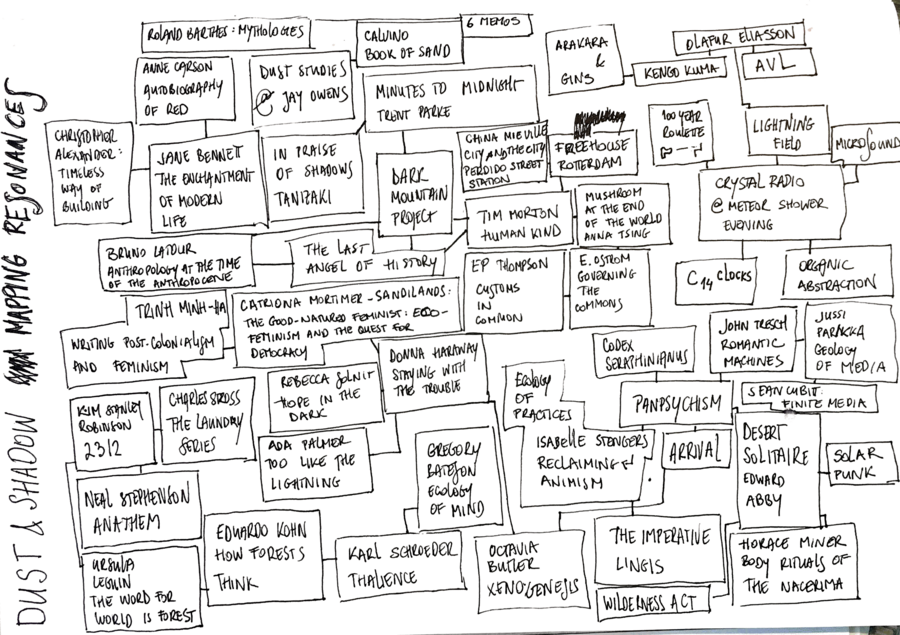 DUST & SHADOW MAPPING RESONANCES
ROLAND BARTHES: MYTHOLOGIES
CALVINO
BOOK OF SAND
6 MEMOS
ARAKARA
&
GINS
OLAFUR ELIASSON
KENGO KUMA
AVL
ANNE CARSON
AUTOBIOGRAPHY
OF RED
DUST STUDIES
@ JAY OWENS
MINUTES TO MIDNIGHT
TRENT PARKE
CHRISTOPHER
ALEXANDER:
TIMELESS
WAY OF
BUILDING
JANE BENNETT
THE ENCHANTMENT
OF MODERN
LIFE
IN PRAISE
OF SHADOWS
TANIZAKI
DARK
MOUNTAIN
PROJECT
CHINA MIEVILLE
CITY AND THE CITY
PERDIDO STREET
STATION
FREEHOUSE
ROTTERDAM
100 YEAR
ROULETE
LIGHTNING
FIELD
MICROSOUND
CRYSTAL RADIO
@ METEOR SHOWER
EVENING
TIM MORTON
HUMAN KIND
MUSHROOM
AT THE END
OF THE WORLD
ANNA TSING
BRUNO LATOUR
ANTHROPOLOGY AT THE TIME
OF THE ANTHROPOCENE
THE LAST
ANGEL OF HISTORY
EP THOMPSON
CUSTOMS
IN
COMMON
E. OSTROM
GOVERNING
THE
COMMONS
C14 CLOCKS
ORGANIC
ABSTRACTION
TRINH MINH-HA
WRITING POST-COLONIALISM
AND FEMINISM
CATRIONA MORTIMER-SANDILANDS:
THE GOOD-NATURED FEMINIST: ECO-
FEMINISM AND THE QUEST FOR
DEMOCRACY
CODEX
SERAPHINIANUS
JOHN TRESCH
ROMANTIC
MACHINES
JUSSI
PARIKKA
GEOLOGY
OF MEDIA
DONNA HARAWAY
STAYING WITH
THE TROUBLE
REBECCA SOLNIT
HOPE IN THE
DARK
ECOLOGY
OF
PRACTICES
PANPSYCHISM
SEAN CUBIT:
FINITE MEDIA
KIM STANLEY
ROBINSON
2312
CHARLES STROSS
THE LAUNDRY
SERIES
ADA PALMER
TOO LIKE THE
LIGHTNING
GREGORY
BATESON
ECOLOGY
OF MIND
ISABELLE STENGERS
RECLAIMING
ANIMISM
ARRIVAL
DESERT
SOLITAIRE
EDWARD
ABBY
SOLAR
PUNK
NEAL STEPHENSON
ANATHEM
URSULA
LEGUIN
THE WORD FOR
WORLD IS FOREST
EDUARDO KOHN
HOW FORESTS
THINK
KARL SCHROEDER
THALIENCE
OCTAVIA
BUTLER
XENOGENESIS
THE IMPERATIVE
LINGIS
WILDERNESS ACT
HORACE MINER
BODY RITUALS OF
THE NACERIMA